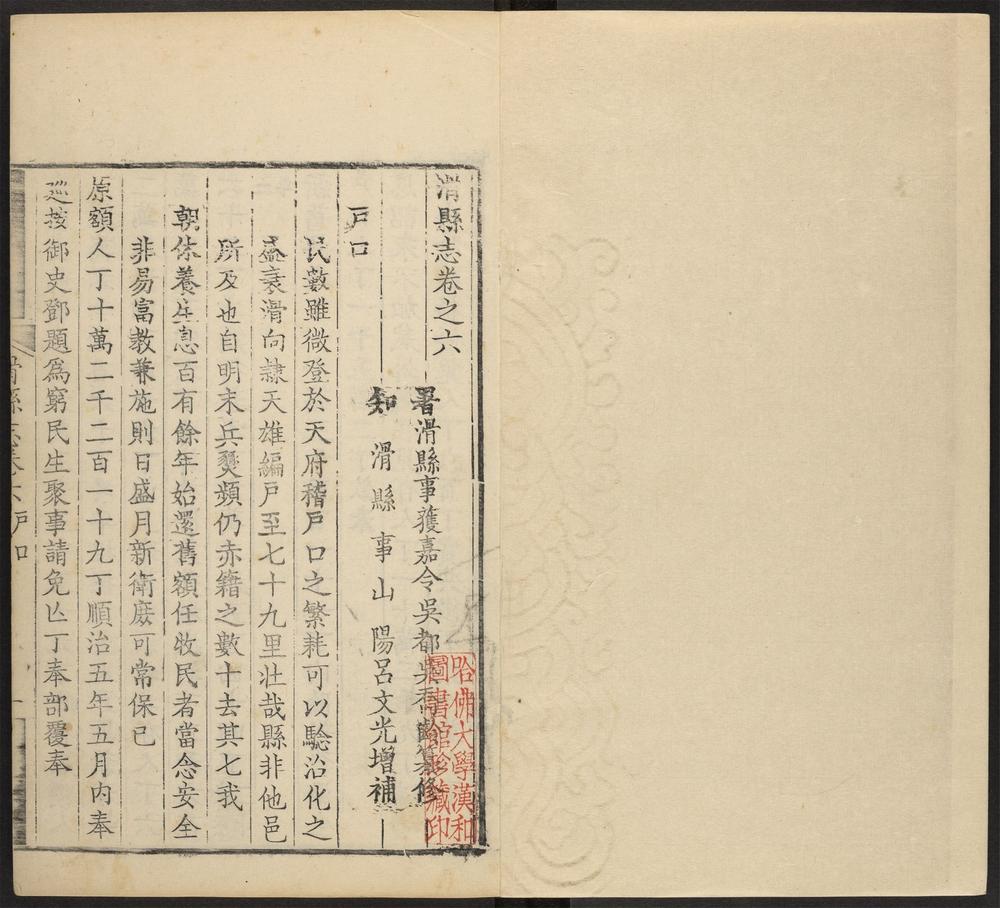 滑縣志卷之六
署滑縣事獲嘉令吳都吳喬齡纂修
知滑縣事山陽呂文光增補
戸口
民數雖微登於天府稽戸口之繁耗可以驗治化之
盛衰滑向隷天雄編戸至七十九里壯哉縣非他邑
所及也自明末兵燹頻仍赤籍之數十去其七我
朝休養生息百有餘年始還舊額任牧民者當念安全
非易富教兼施則日盛月新衛廢可常保已
原額人丁十萬二千二百一十九丁順治五年五月内奉
巡按御史鄧題爲窮民生聚事請免亾丁奉部覆奉
滑縣志卷六戸口
一
哈佛大學漢和
圖書館珍藏印